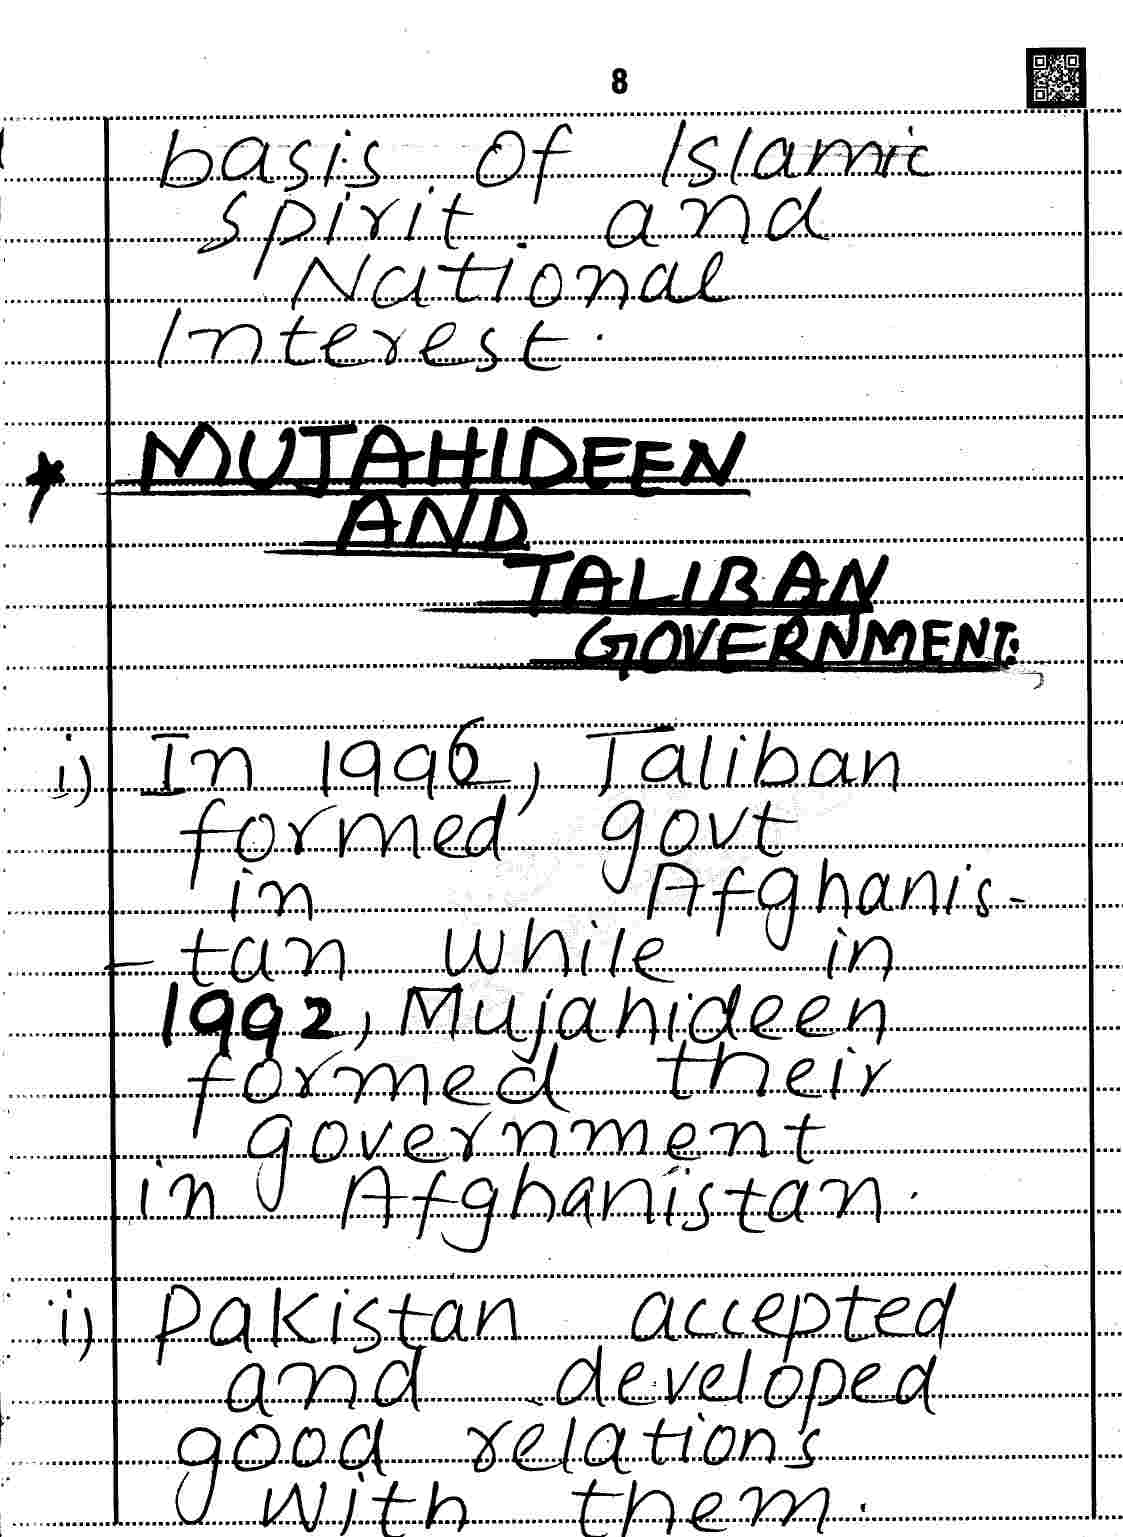 8
basis of Islamic
spirit and
National
Interest.
MUJAHIDEEN
AND
TALIBAN
GOVERNMENT:
i) In 1996, Taliban
formed govt
in Afghanis-
-tan while in
1992, Mujahideen
formed their
government
in Afghanistan.
ii) Pakistan accepted
and developed
good relations
with them.